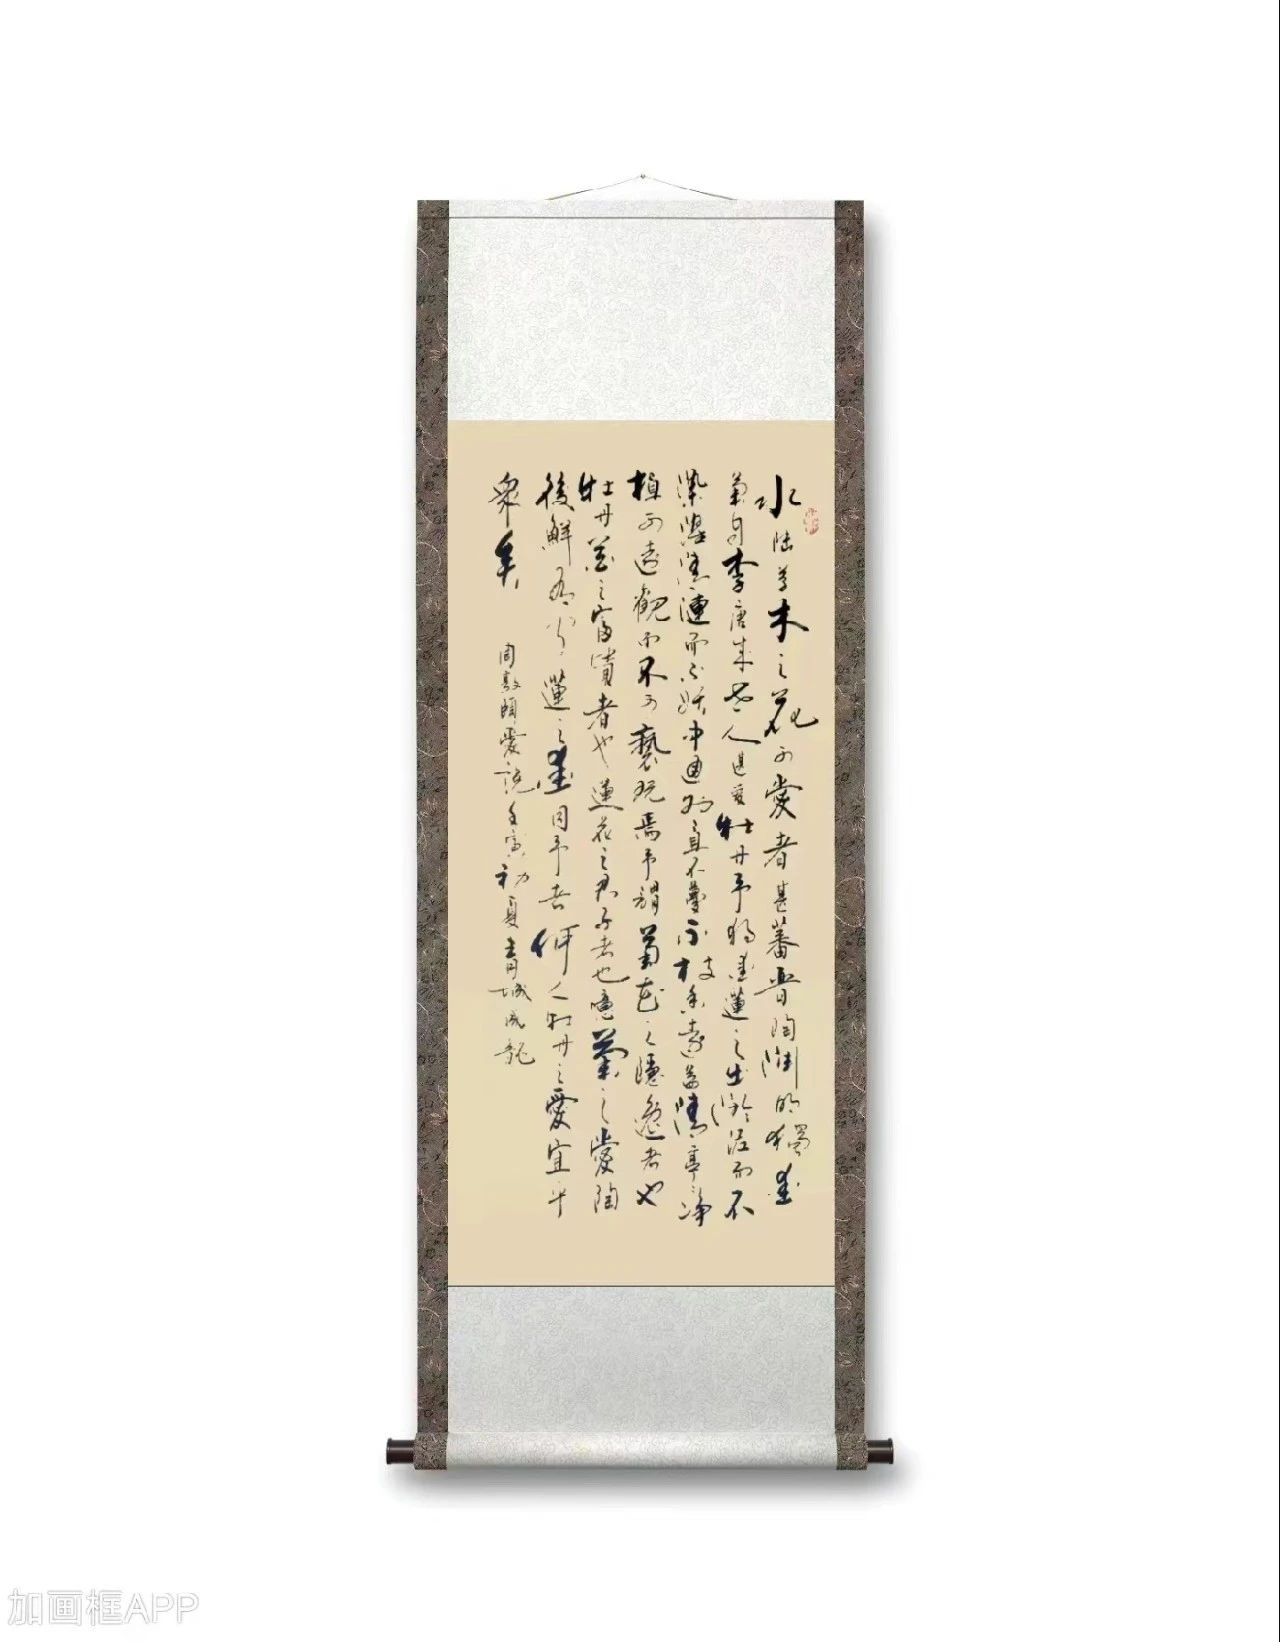 水陸草木之花可愛者甚蕃晉陶淵明獨愛
菊自李唐來世人甚愛牡丹予獨愛蓮之出淤泥而不
染濯清漣而不妖中通外直不蔓不枝香遠益清亭淨
植可遠觀而不可褻玩焉予謂菊花之隱逸者也
牡丹花之富貴者也蓮花之君子者也噫菊之愛陶
後鮮有聞蓮之愛同予者何人牡丹之愛宜乎
眾矣
周敦頤愛說壬寅初夏青城成龍
加画框APP